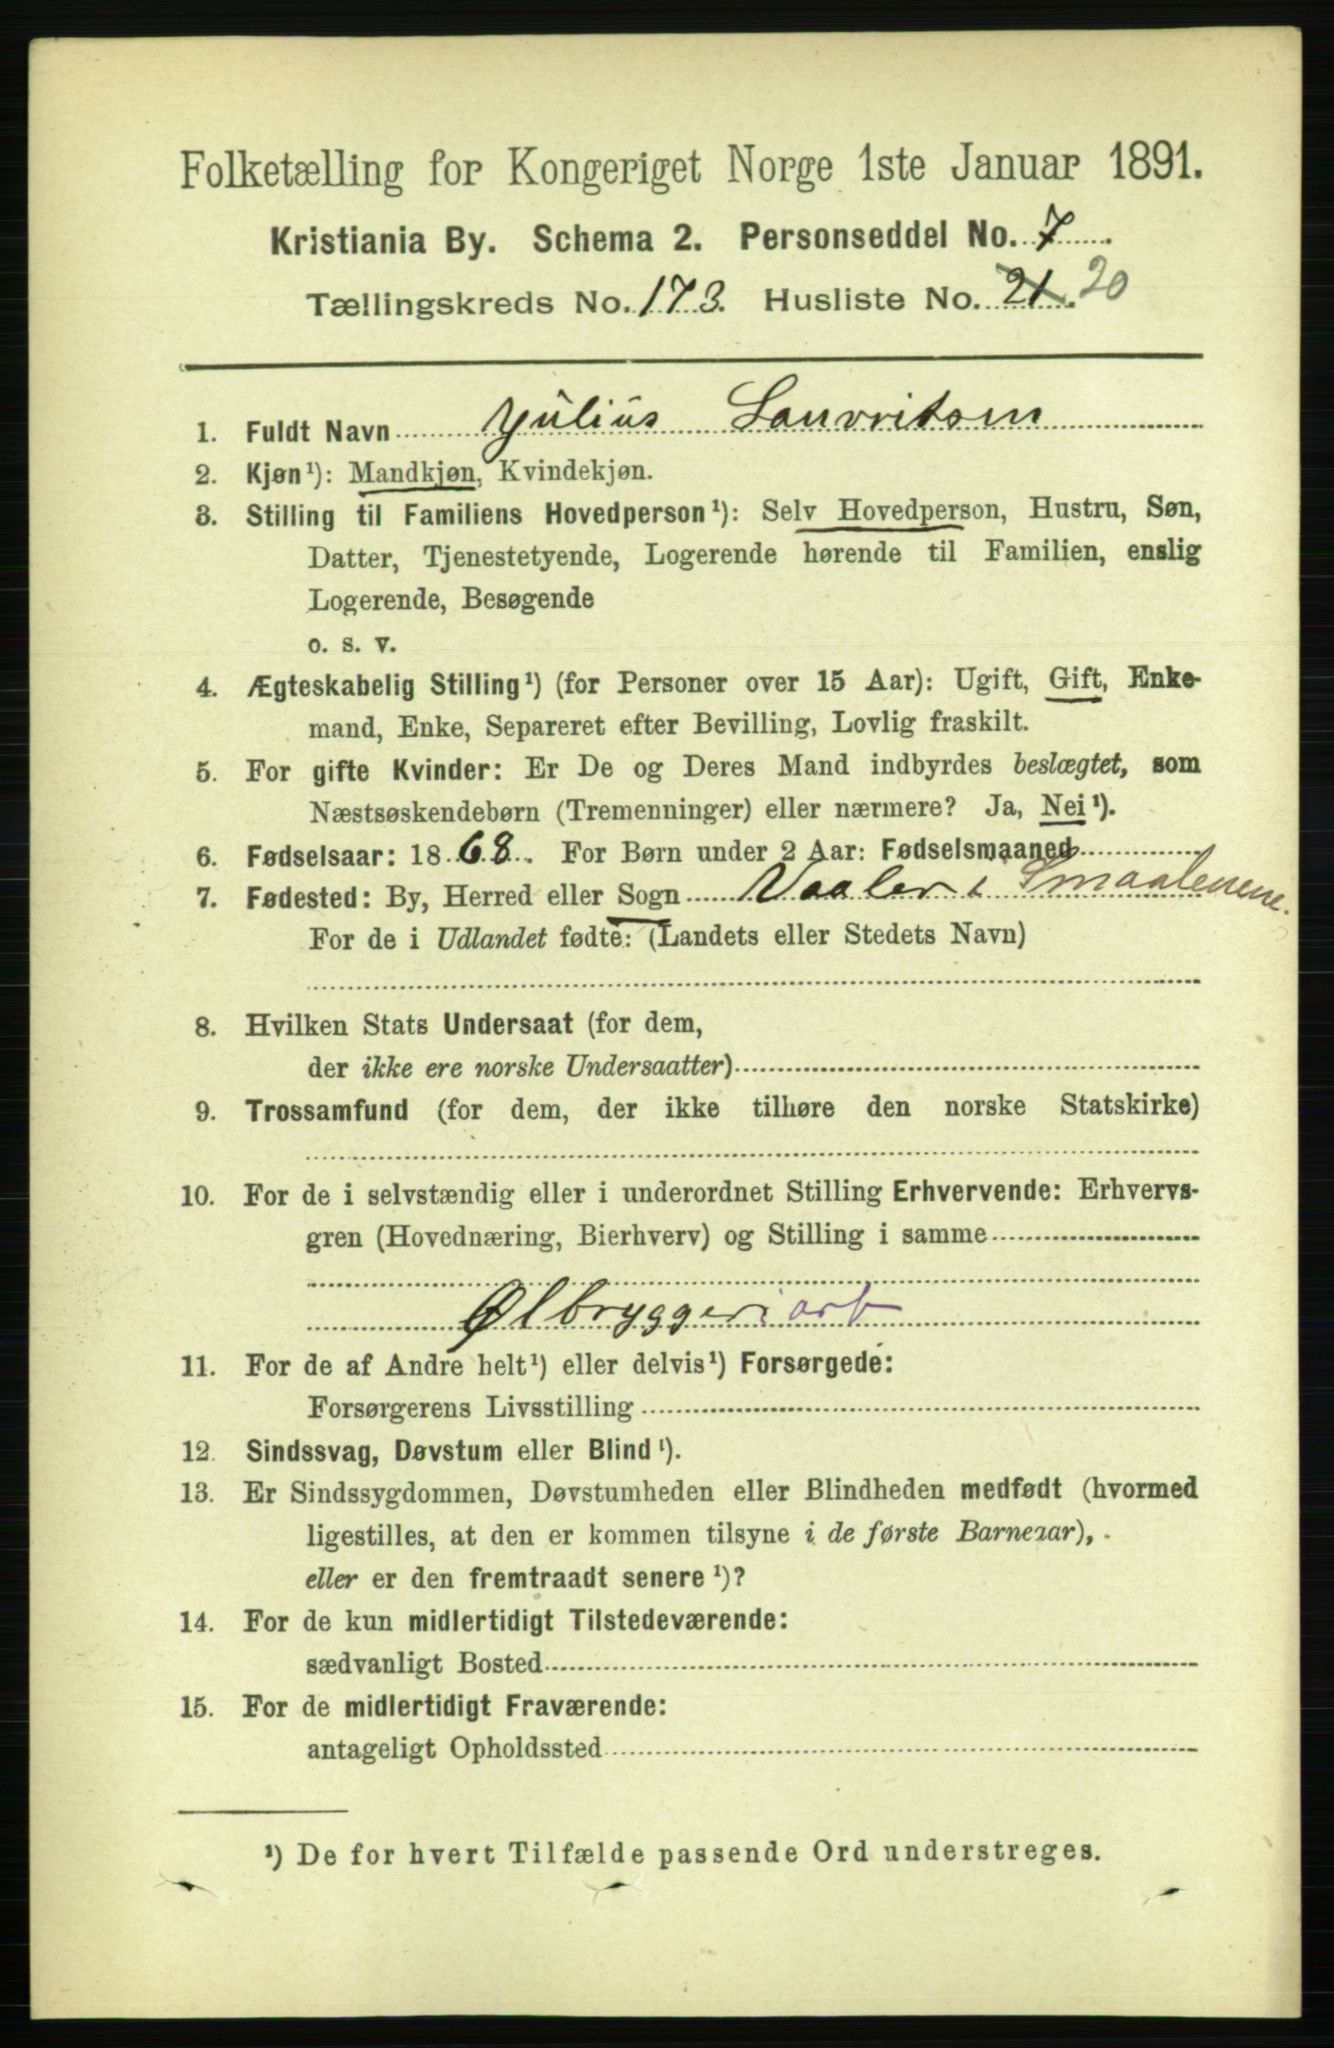 Folketælling for Kongeriget Norge 1ste Januar 1891.
Kristiania By. Schema 2. Personseddel No. 7
Tællingskreds No. 173. Husliste No. 21. 20
1. Fuldt Navn Julius Lauritsen
2. Kjøn¹): Mandkjøn, Kvindekjøn.
3. Stilling til Familiens Hovedperson¹): Selv Hovedperson, Hustru, Søn,
Datter, Tjenestetyende, Logerende hørende til Familien, enslig
Logerende, Besøgende
o. s. v.
4. Ægteskabelig Stilling¹) (for Personer over 15 Aar): Ugift, Gift, Enke-
mand, Enke, Separeret efter Bevilling, Lovlig fraskilt.
5. For gifte Kvinder: Er De og Deres Mand indbyrdes beslægtet, som
Næstsøskendebørn (Tremenninger) eller nærmere? Ja, Nei¹).
6. Fødselsaar: 1868. For Børn under 2 Aar: Fødselsmaaned
7. Fødested: By, Herred eller Sogn Vaaler i Smaalenene.
For de i Udlandet fødte: (Landets eller Stedets Navn)
8. Hvilken Stats Undersaat (for dem,
der ikke ere norske Undersaatter)
9. Trossamfund (for dem, der ikke tilhøre den norske Statskirke)
10. For de i selvstændig eller i underordnet Stilling Erhvervende: Erhvervs-
gren (Hovednæring, Bierhverv) og Stilling i samme
Ølbryggeriarb
11. For de af Andre helt¹) eller delvis¹) Forsørgede:
Forsørgerens Livsstilling
12. Sindssvag, Døvstum eller Blind¹).
13. Er Sindssygdommen, Døvstumheden eller Blindheden medfødt (hvormed
ligestilles, at den er kommen tilsyne i de første Barneaar),
eller er den fremtraadt senere¹)?
14. For de kun midlertidigt Tilstedeværende:
sædvanligt Bosted
15. For de midlertidigt Fraværende:
antageligt Opholdssted
¹) De for hvert Tilfælde passende Ord understreges.